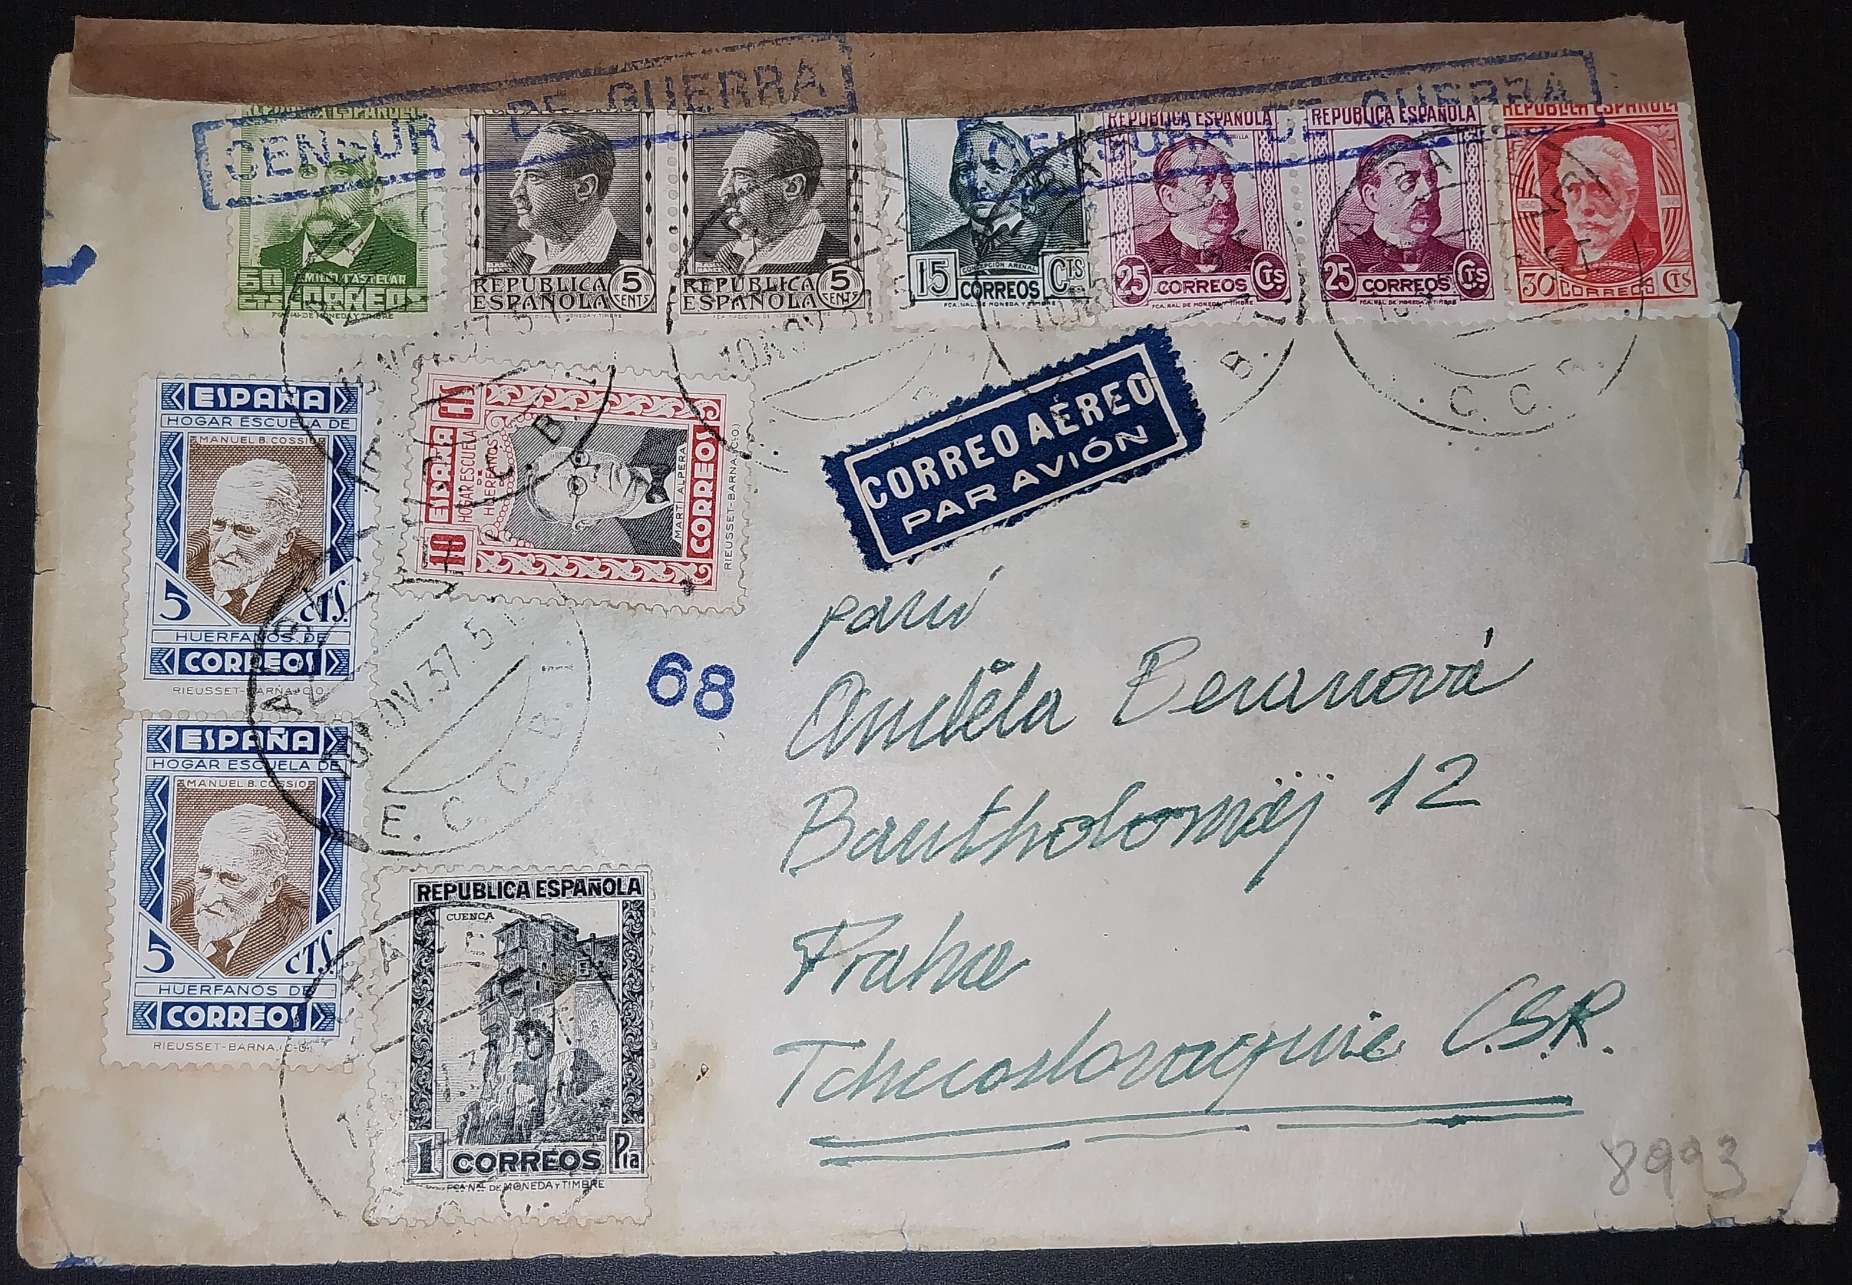 CENSURA DE GUERRA
CENSURA DE GUERRA
REPUBLICA ESPAÑOLA
EMILIO CASTELAR
50
CTS CORREOS
FCA. NAL. DE MONEDA Y TIMBRE
REPUBLICA
ESPAÑOLA
5
CENTS
REPUBLICA
ESPAÑOLA
5
CENTS
CONCEPCIÓN ARENAL
15 CTS
CORREOS
FCA. NAL. DE MONEDA Y TIMBRE
REPUBLICA ESPAÑOLA
25 CORREOS CTS
FCA. NAL. DE MONEDA Y TIMBRE
REPUBLICA ESPAÑOLA
25 CORREOS CTS
FCA. NAL. DE MONEDA Y TIMBRE
REPUBLICA ESPAÑOLA
30 CORREOS CTS
ESPAÑA
HOGAR ESCUELA DE
MANUEL B. COSSIO
5 CTS.
HUERFANOS DE
CORREOS
RIEUSSET-BARNA.(C-O)
10 ESPAÑA CTS
HOGAR ESCUELA
DE
HUERFANOS
MARTÍ ALPERA
CORREOS
RIEUSSET-BARNA.(C-O)
CORREO AÉREO
PAR AVIÓN
ESPAÑA
HOGAR ESCUELA DE
MANUEL B. COSSIO
5 CTS.
HUERFANOS DE
CORREOS
RIEUSSET-BARNA.(C-O)
10 NOV. 37. 5 T.
E. C. C. B. 1
68
REPUBLICA ESPAÑOLA
CUENCA
1 CORREOS Pta
FCA. NAL. DE MONEDA Y TIMBRE
paní
Anděla Beranová
Bartholoměj 12
Praha
Tchecoslovaquie C.S.R.
8993